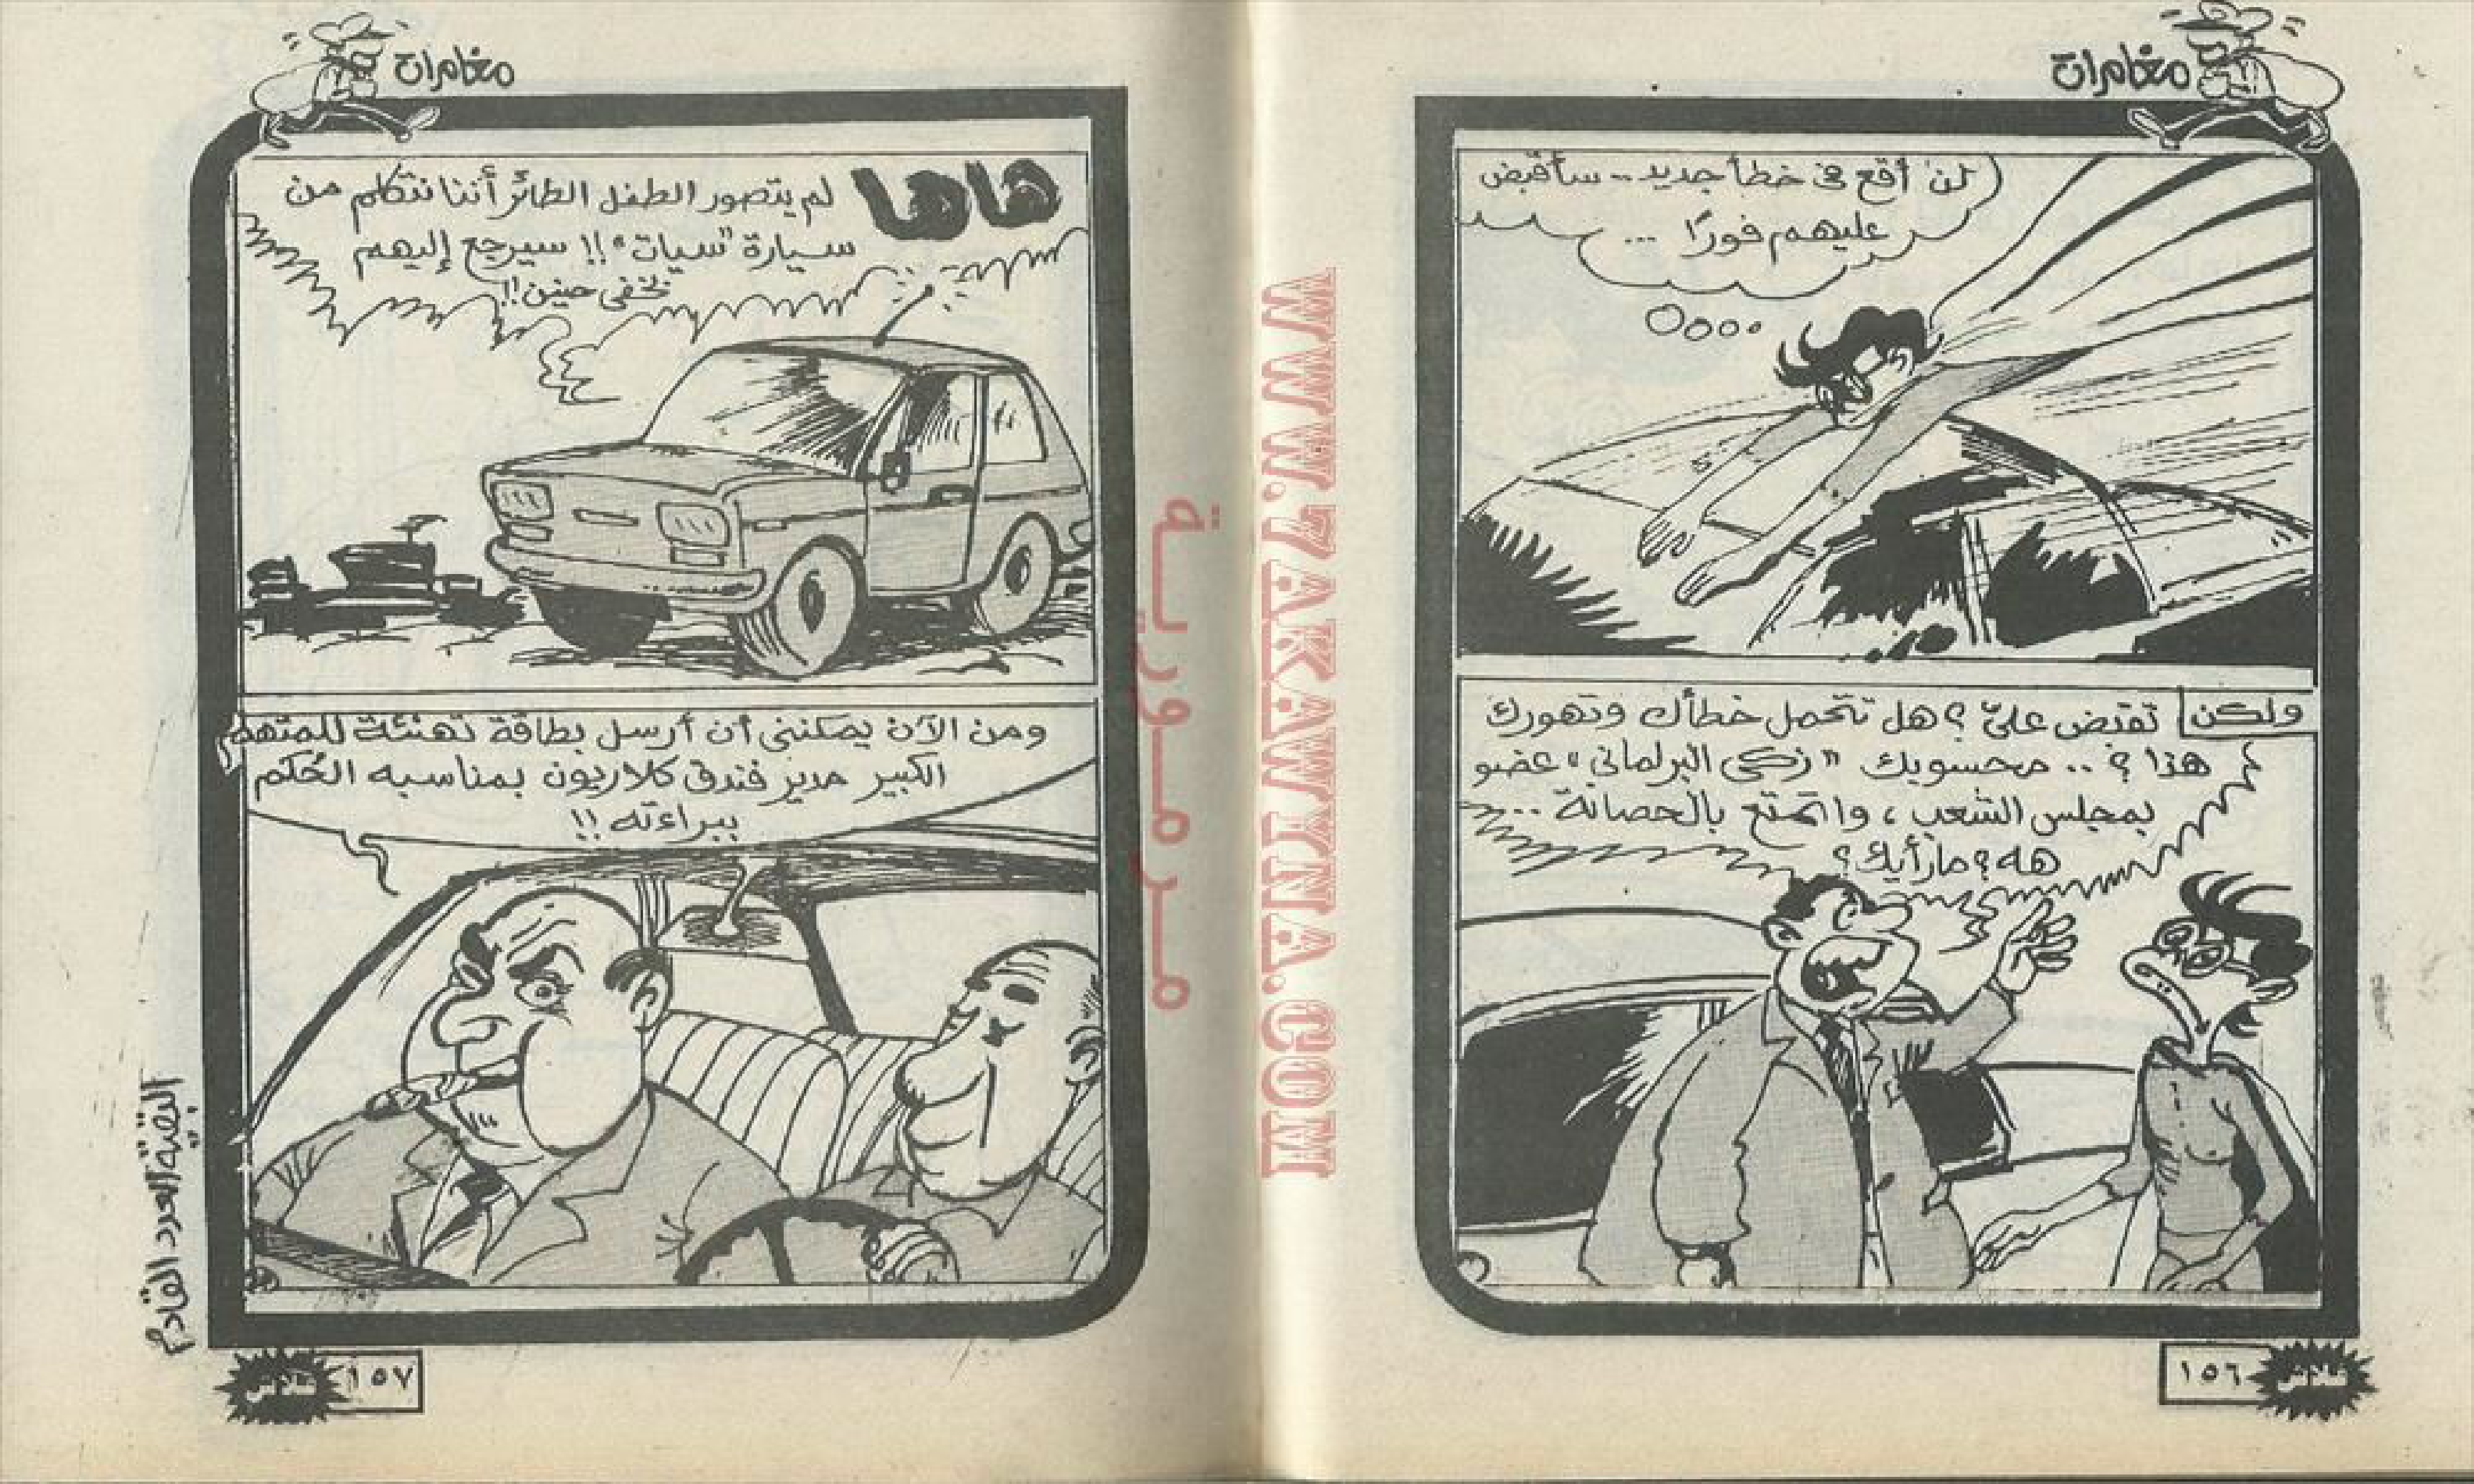 مغامرات
لن أقع في خطأ جديد .. سأقبض
عليهم فورًا ...
ولكن
تقبض عليّ ؟ هل تتحمل خطأك وتهورك
هذا ؟ .. محسوبك "زكي البرلماني" عضو
بمجلس الشعب ، واتمتع بالحصانة ...
هه ؟ ما رأيك ؟
١٥٦
فلاش
مغامرات
هاها
لم يتصور الطفل الطائر أننا نتكلم من
سيارة "سيات" !! سيرجع إليهم
بخفى حنين !!
ومن الآن يمكننى أن أرسل بطاقة تهنئة للمتهم
الكبير مدير فندق كلاريون بمناسبه الحُكم
ببراءته !!
البقية العدد القادم
١٥٧
فلاش
WWW.7AKAWINA.COM
مرمورية